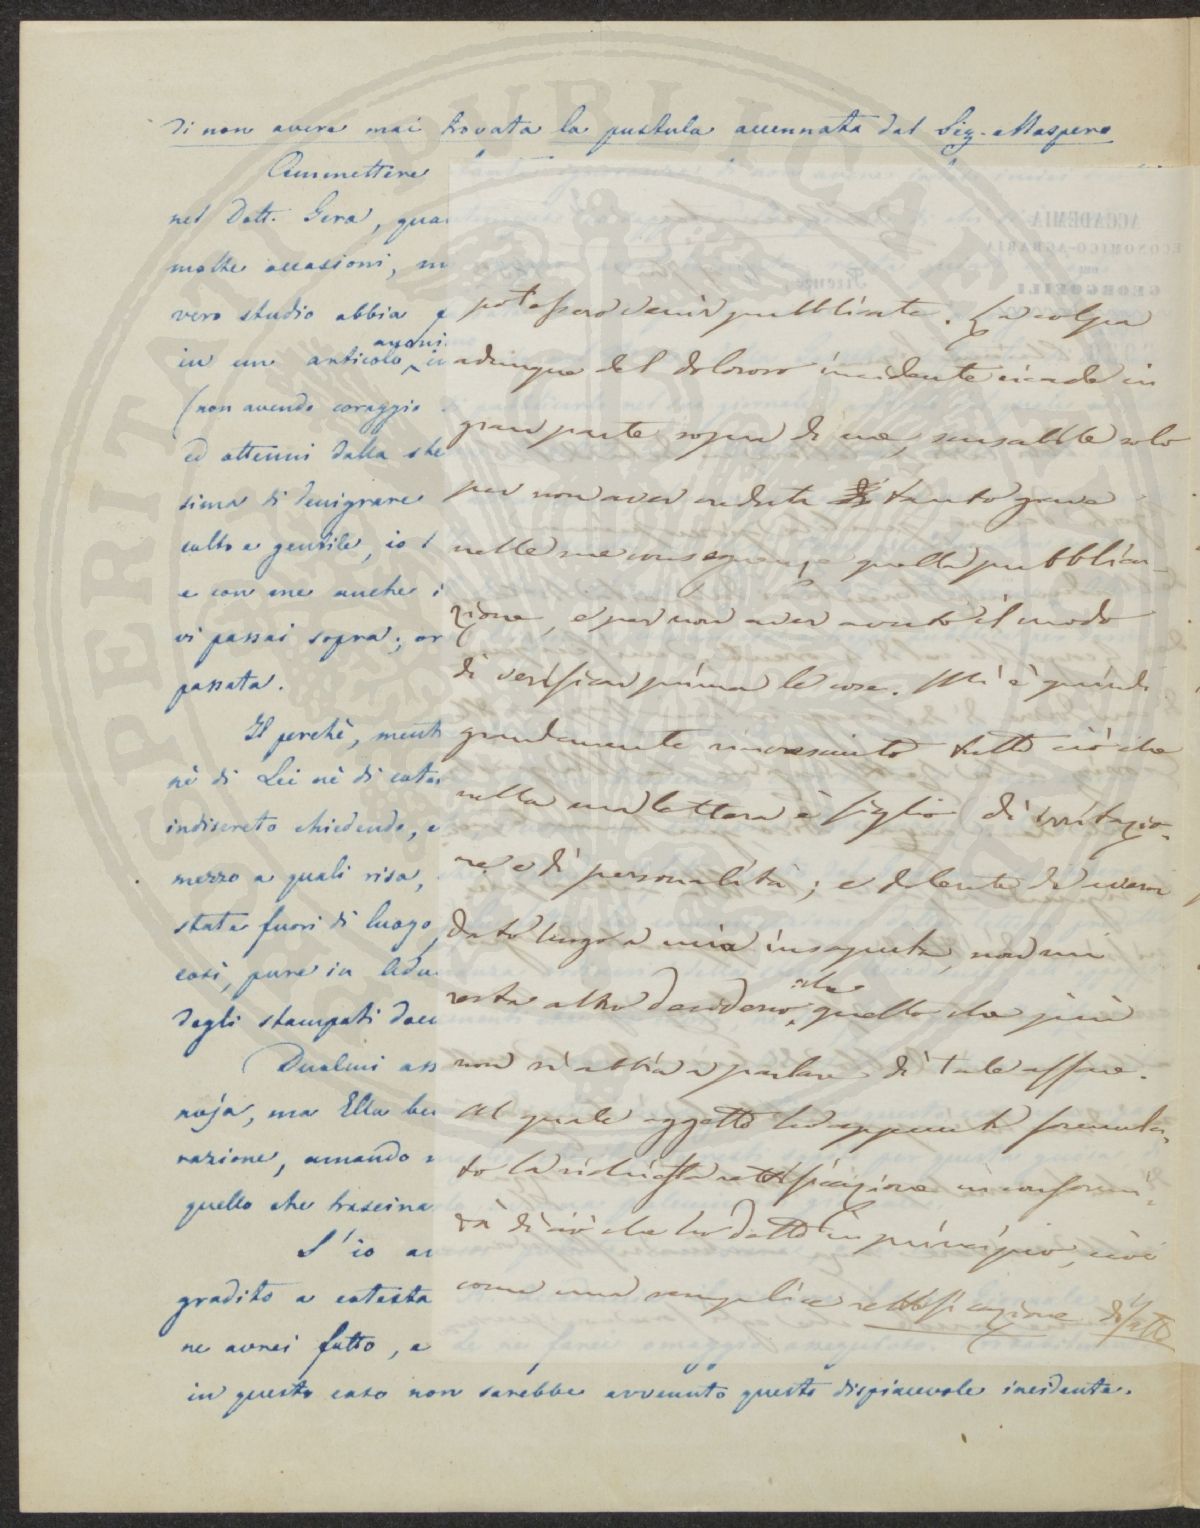 di non avere mai trovata la pustula accennata dal Sig. Maspero
Ammettere
nel Dott. Gera, qua
molte occasioni, m
vero studio abbia
anoni
in un articolo, in
(non avendo coraggio
ed ottenni dalla ste
sima di denigrare
culto e gentile, io
e con me anche i
vi passai sopra; or
passata.
Il perchè, ment
nè di Lei nè di cotes
indiscreto chiedendo, e
mezzo a quali risa,
state fuori di luogo,
così, pure in Adu
degli stampati doc
Duolmi ass
noja, ma Ella be
razione, amando
quello che trascina
S'io av
gradito a cotesta
ne avrei fatto, e
in questo caso non sarebbe avvenuto questo dispiacevole incidente.
ACCADEMIA
ECONOMICO-AGRARIA
DEI
GEORGOFILI
Firenze
potessero venir pubblicate. La colpa
adunque del doloroso incidente ricade in
gran parte sopra di me, scusabile solo
per non aver creduta di tanto grave
nelle sue conseguenze quella pubblica-
zione, e per non aver avuto il modo
di verificar prima le cose. Mi è quindi
grandemente rincresciuto tutto ciò che
nella sua lettera è figlio di irritazio-
ne e di personalità; e dolente di avervi
dato luogo a mia insaputa, non mi
resta altro desiderio che quello che più
non si abbia a parlare di tale affare.
Al quale oggetto ho appunto formula-
to la richiesta rettificazione in conformi-
tà di ciò che ho detto in principio, cioè
come una semplice rettificazione di fatto
PERITAT PUBLICAE